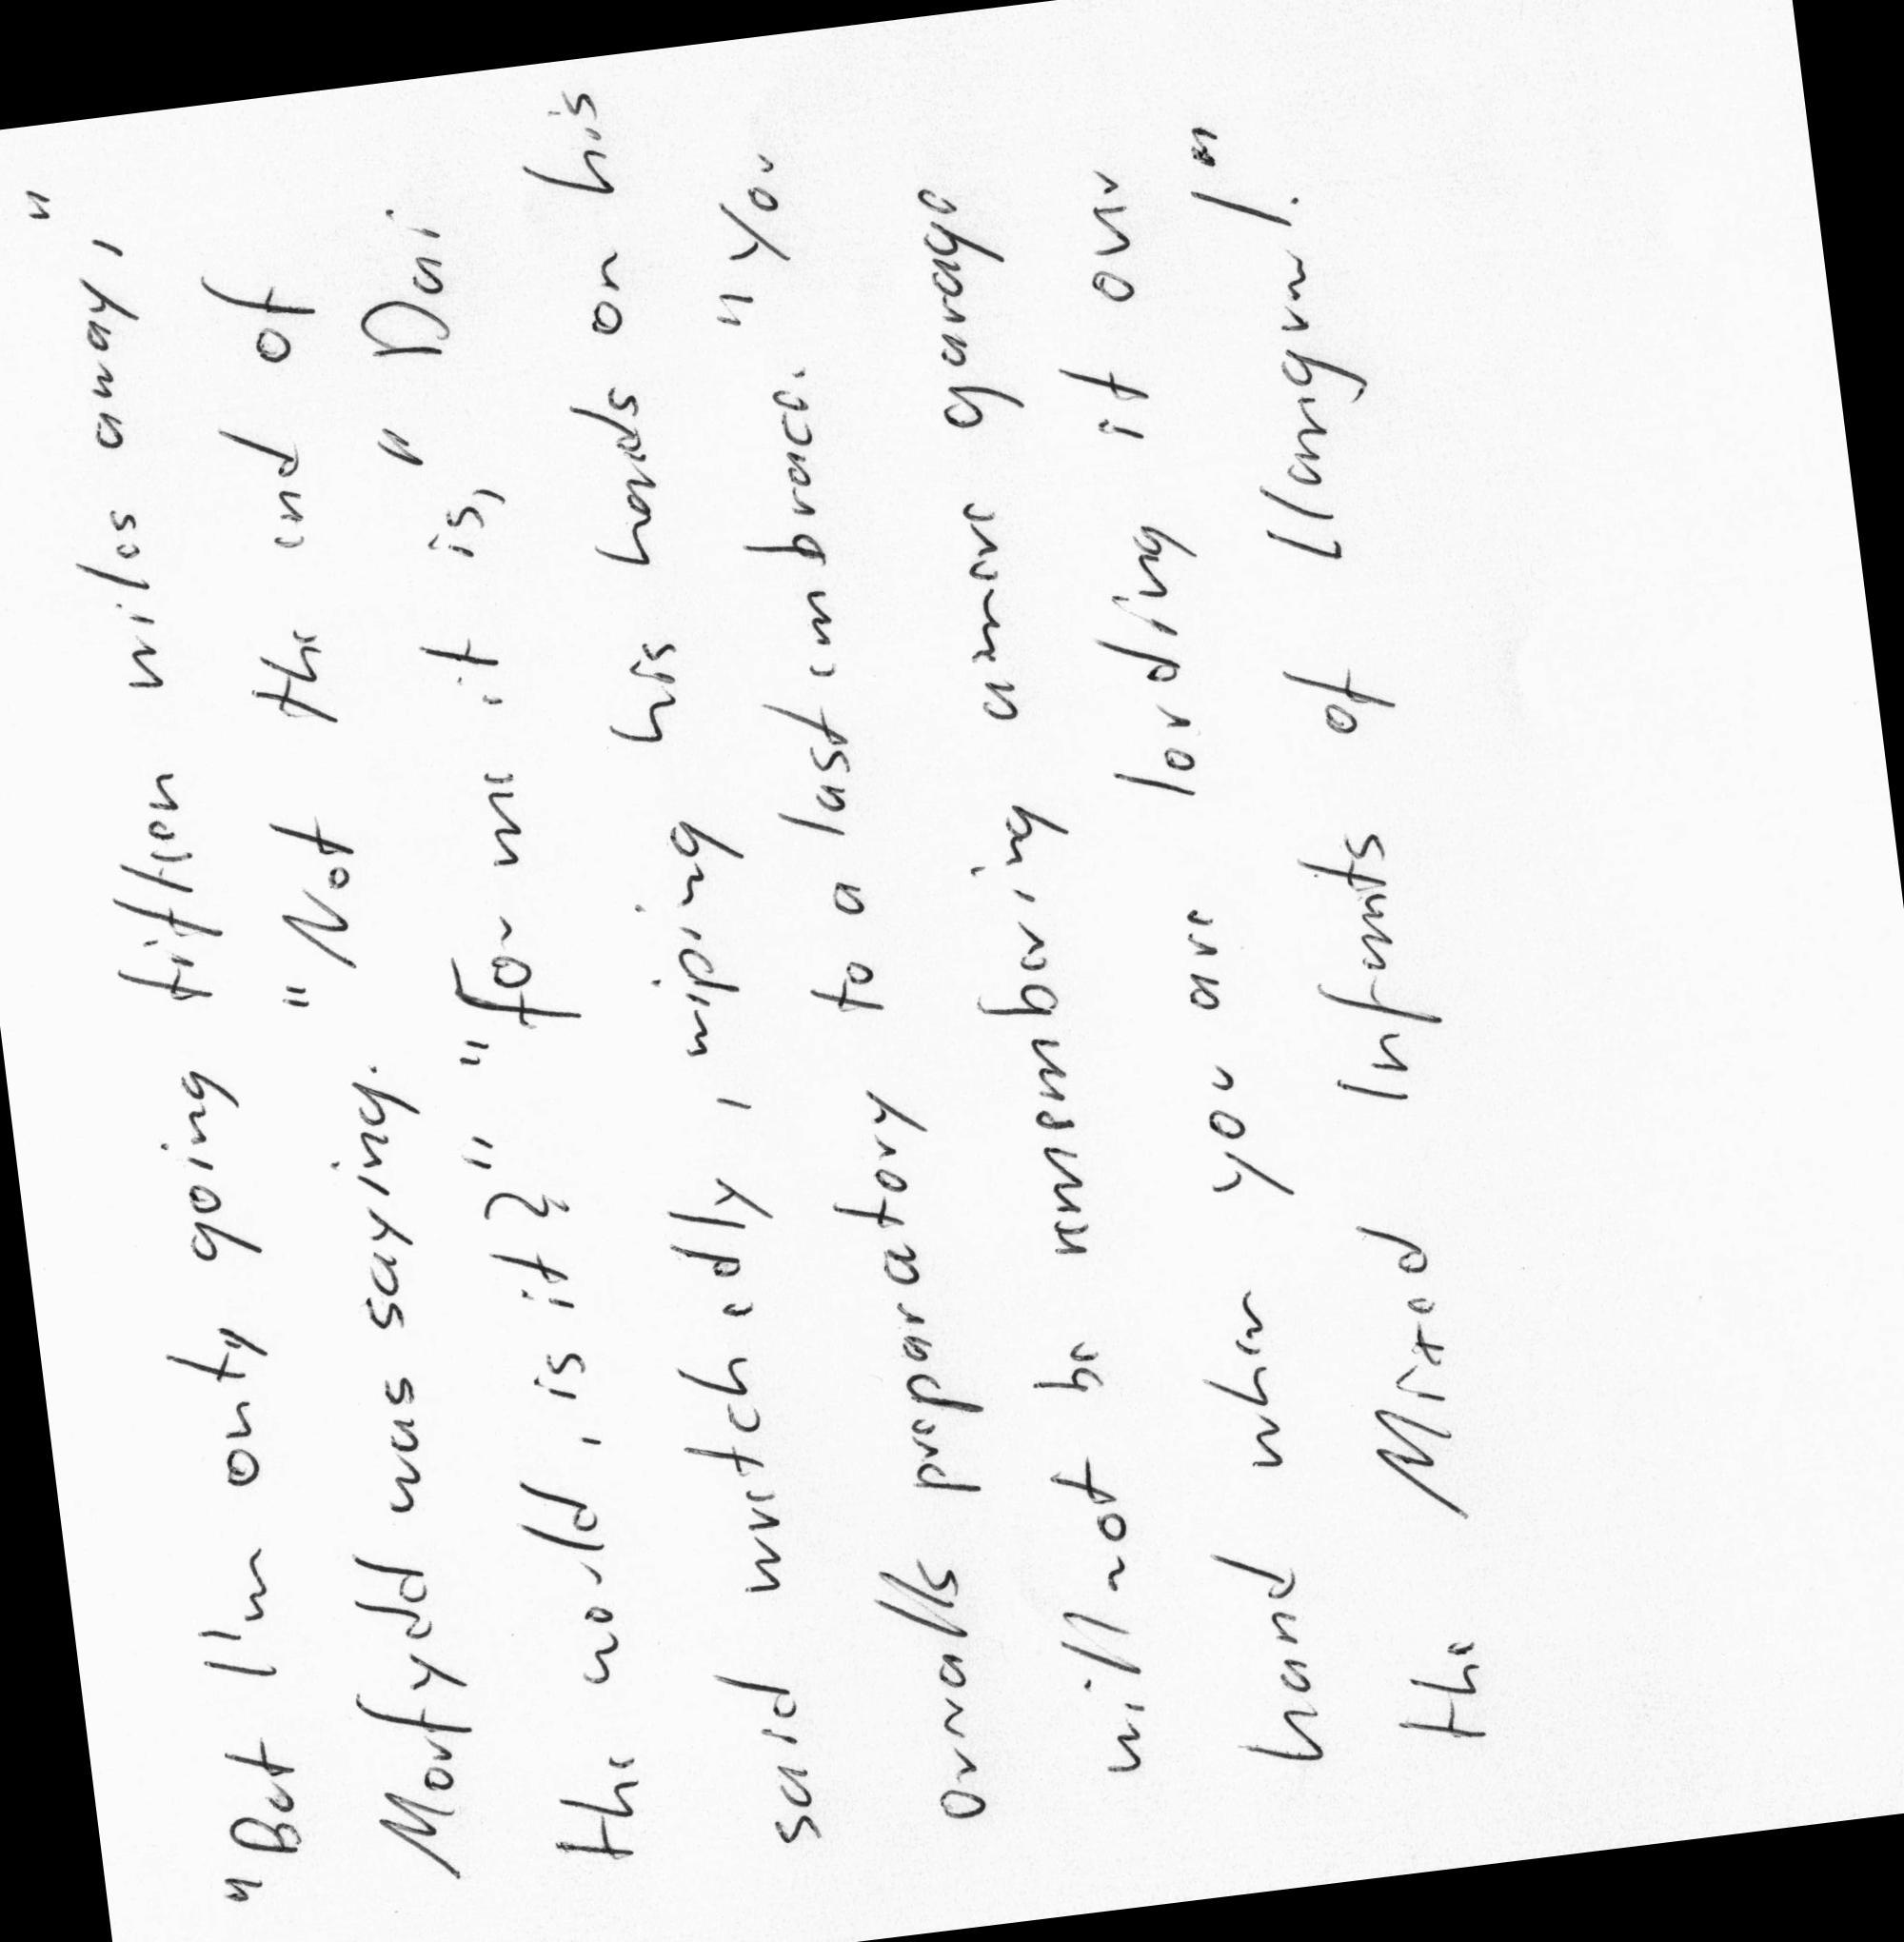 "But I'm only going fifteen miles away,"
Morfydd was saying. "Not the end of
the world, is it?" "For me it is," Dai
said wretchedly, wiping his hands on his
overalls preparatory to a last embrace. "You
will not be remembering
hand when you are lording it over
the Mixed Infants of Llangwm!"